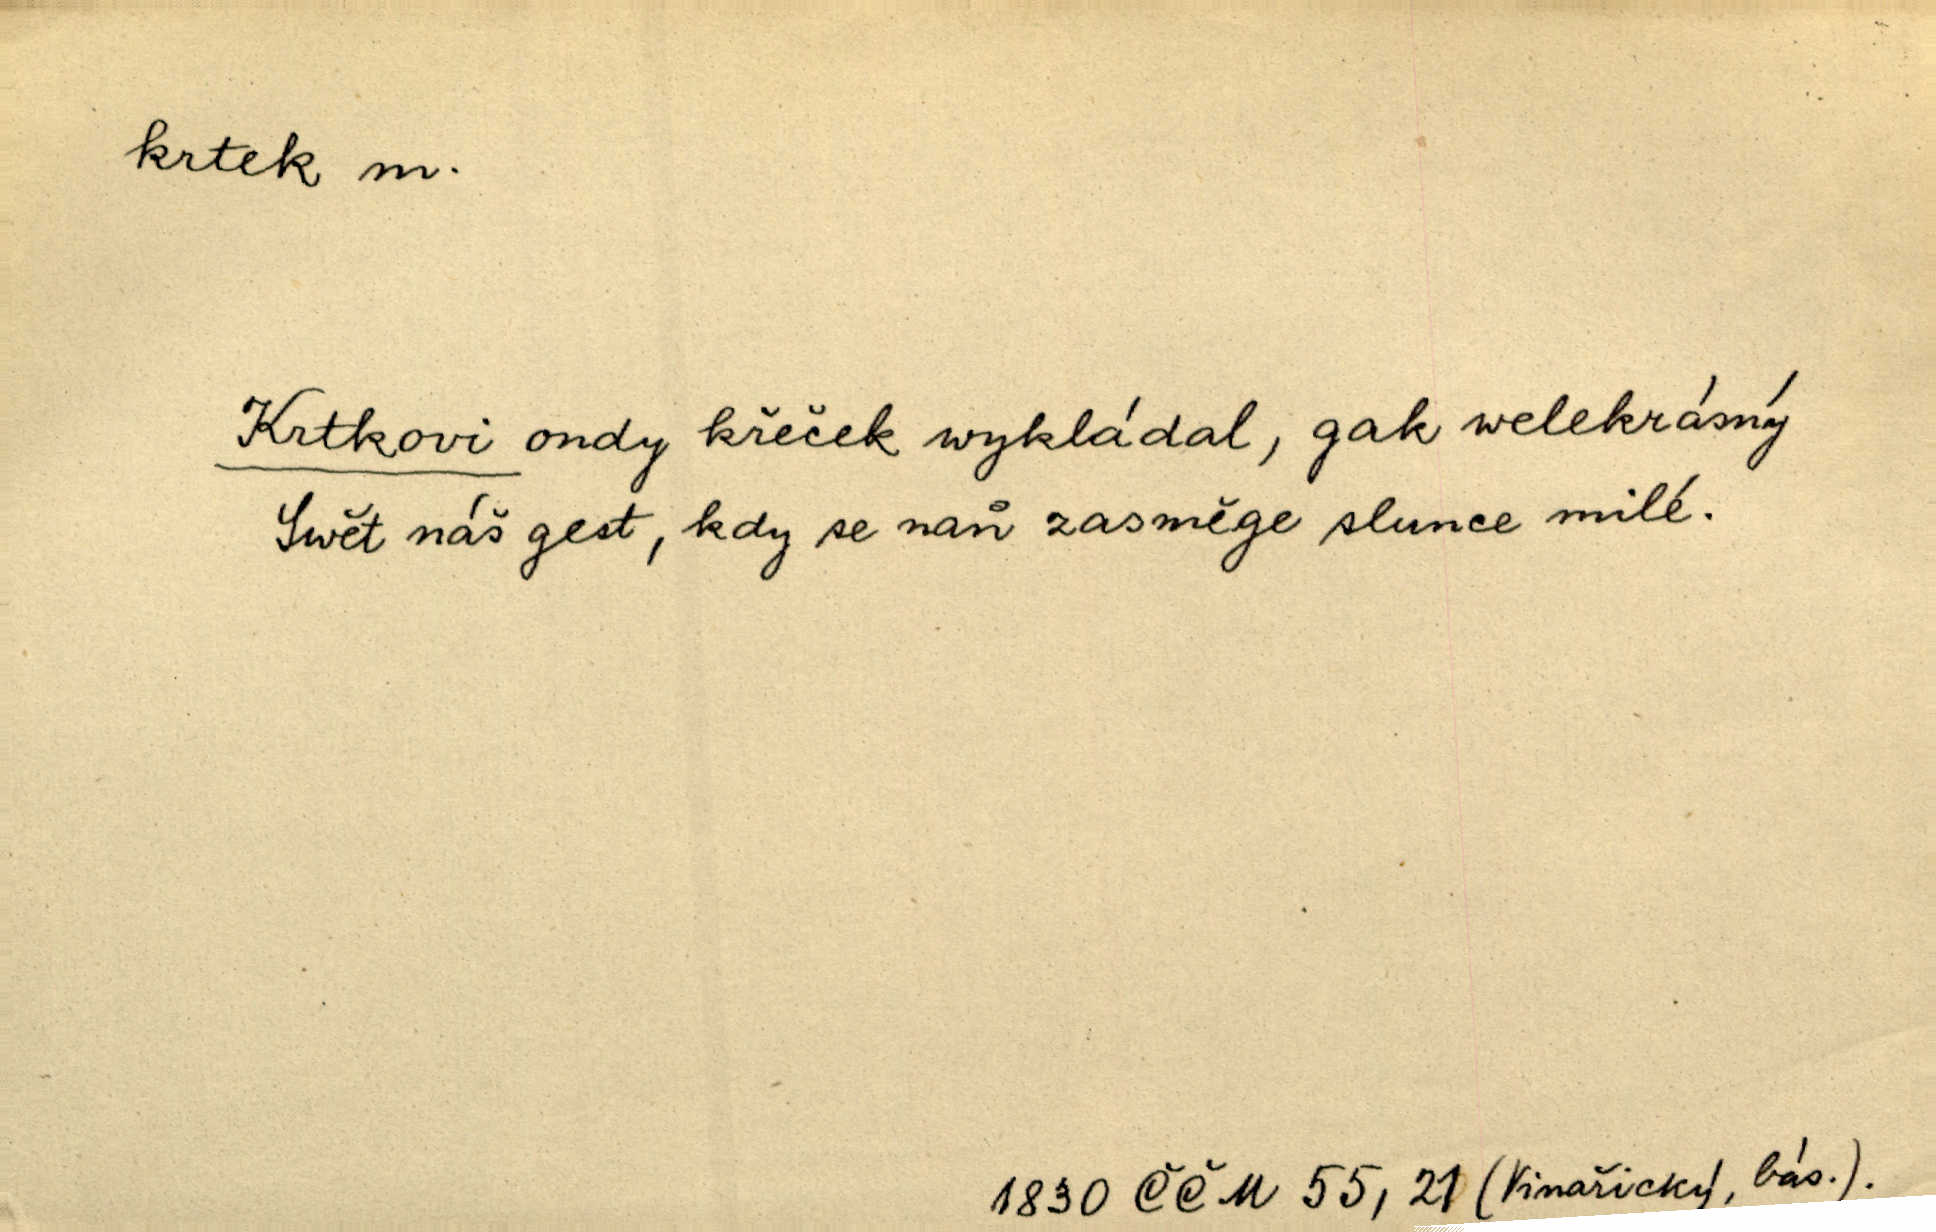 krtek m.
Krtkovi ondy křeček wykládal, gak welekrásný
Swět náš gest, kdy se naň zasměge slunce milé.
1830 ČČM 55, 21 (Vinařický, bás.).